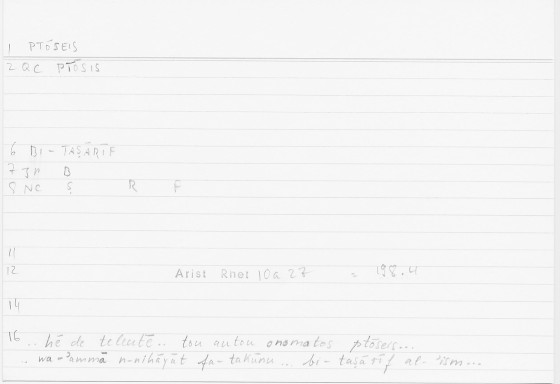 1 PTŌSEIS
2 QC PTŌSIS
6 BI - TAṢĀRĪF
7 JP B
8 NC Ṣ R F
11
12 Arist Rhet 10a 27 = 198.4
14
16 .. hē de teleutē .. tou autou onomatos ptōseis...
. wa-ʾammā n-nihāyāt fa-takūnu .. bi-taṣārīf al-ʾism...